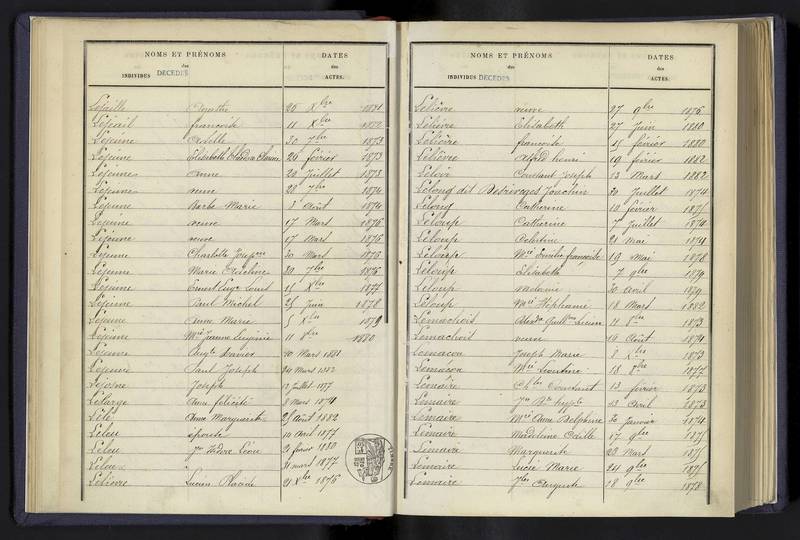 NOMS ET PRÉNOMS
des
INDIVIDUS DÉCÉDÉS
DATES
des
ACTES.
Lefaille 26 Xbre 1871
Lejeail françoise 11 Xbre 1872
Lejeune 30 7bre 1873
Lejeune Elisabeth 26 février 1873
Lejeune Anne 29 Juillet 1873
Lejeune 28 7bre 1874
Lejeune Barbe Marie 3 Août 1874
Lejeune veuve 17 Mars 1876
Lejeune veuve 17 Mars 1876
Lejeune Charlotte 30 Mars 1876
Lejeune Marie 30 7bre 1876
Lejeune Ernest Eugne Louis 15 Xbre 1877
Lejeune Paul Michel 25 Juin 1878
Lejeune Anne Marie 5 Xbre 1879
Lejeune Mrie Jeanne Eugénie 11 8bre 1880
Lejeune 20 Mars 1881
Lejeune Paul Joseph 24 Mars 1882
Lejosne Joseph 12 Juillet 1877
Lelarge Anne félicité 8 Mars 1871
Lélé Anne Marguerite 25 Août 1882
Leleu épouse 14 Avril 1877
Leleu 21 février 1880
Leleu 31 mars 1877
Lelievre Lucien Placide 21 Xbre 1876
NOMS ET PRÉNOMS
des
INDIVIDUS DÉCÉDÉS
DATES
des
ACTES.
Lelièvre veuve 27 9bre 1876
Lelièvre Elisabeth 27 Juin 1880
Lelièvre françoise 15 février 1880
Lelièvre Alfred henri 19 février 1882
Leloir Constant Joseph 13 Mars 1882
Lelong dit Joachin 30 Juillet 1874
Lelong Catherine 19 février 1875
Leloup Catherine 7 Juillet 1874
Leloup Celestine 21 Mai 1874
Leloup Mrie Emilie françoise 19 Mai 1878
Leloup Elisabeth 7 9bre 1879
Leloup Melanie 20 Avril 1879
Leloup Mrie Stephanie 18 Mars 1882
Lemachois 11 8bre 1873
Lemachois veuve 16 Août 1874
Lemacon Joseph Marie 8 Xbre 1873
Lemacon Mrie Leontine 18 8bre 1877
Lemaire Chles Constant 13 février 1873
Lemaire 12 Avril 1873
Lemaire Mrie Anne Delphine 20 Janvier 1874
Lemaire Madeleine Odille 17 9bre 1875
Lemaire Marguerite 22 Mars 1875
Lemaire Lucie Marie 24 9bre 1875
Lemaire Jles Auguste 18 9bre 1878